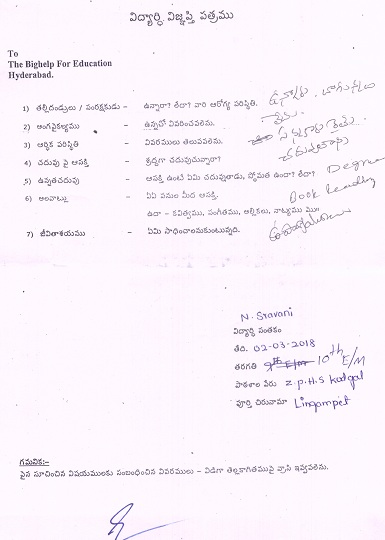 విద్యార్ధి విజ్ఞప్తి పత్రము
To
The Bighelp For Education
Hyderabad.
1) తల్లీదండ్రులు / సంరక్షకుడు - ఉన్నారా? లేదా? వారి ఆరోగ్య పరిస్థితి.
2) అంగవైకల్యము - ఉన్నచో వివరించవలెను.
3) ఆర్ధిక పరిస్థితి - వివరములు తెలుపవలెను.
4) చదువు పై ఆసక్తి - శ్రద్ధగా చదువుచున్నారా?
5) ఉన్నతచదువు - ఆసక్తి ఉంటే ఏమి చదువుతాడు, స్ధోమత ఉందా? లేదా? Degree
6) అలవాట్లు - ఏఏ పనుల మీద ఆసక్తి. Book Reading
ఉదా - కవిత్వము, సంగీతము, అల్లికలు, నాట్యము మొ॥
7) జీవితాశయము - ఏమి సాధించాలనుకుంటున్నది.
N. Sravani
విద్యార్ధి సంతకం
తేది. 02-03-2018
తరగతి 9th E/M 10th E/M
పాఠశాల పేరు Z.P.H.S Kodgal
పూర్తి చిరునామా Lingampet
గమనిక:-
పైన సూచించిన విషయములకు సంబంధించిన వివరములు - విడిగా తెల్లకాగితముపై వ్రాసి ఇవ్వవలెను.